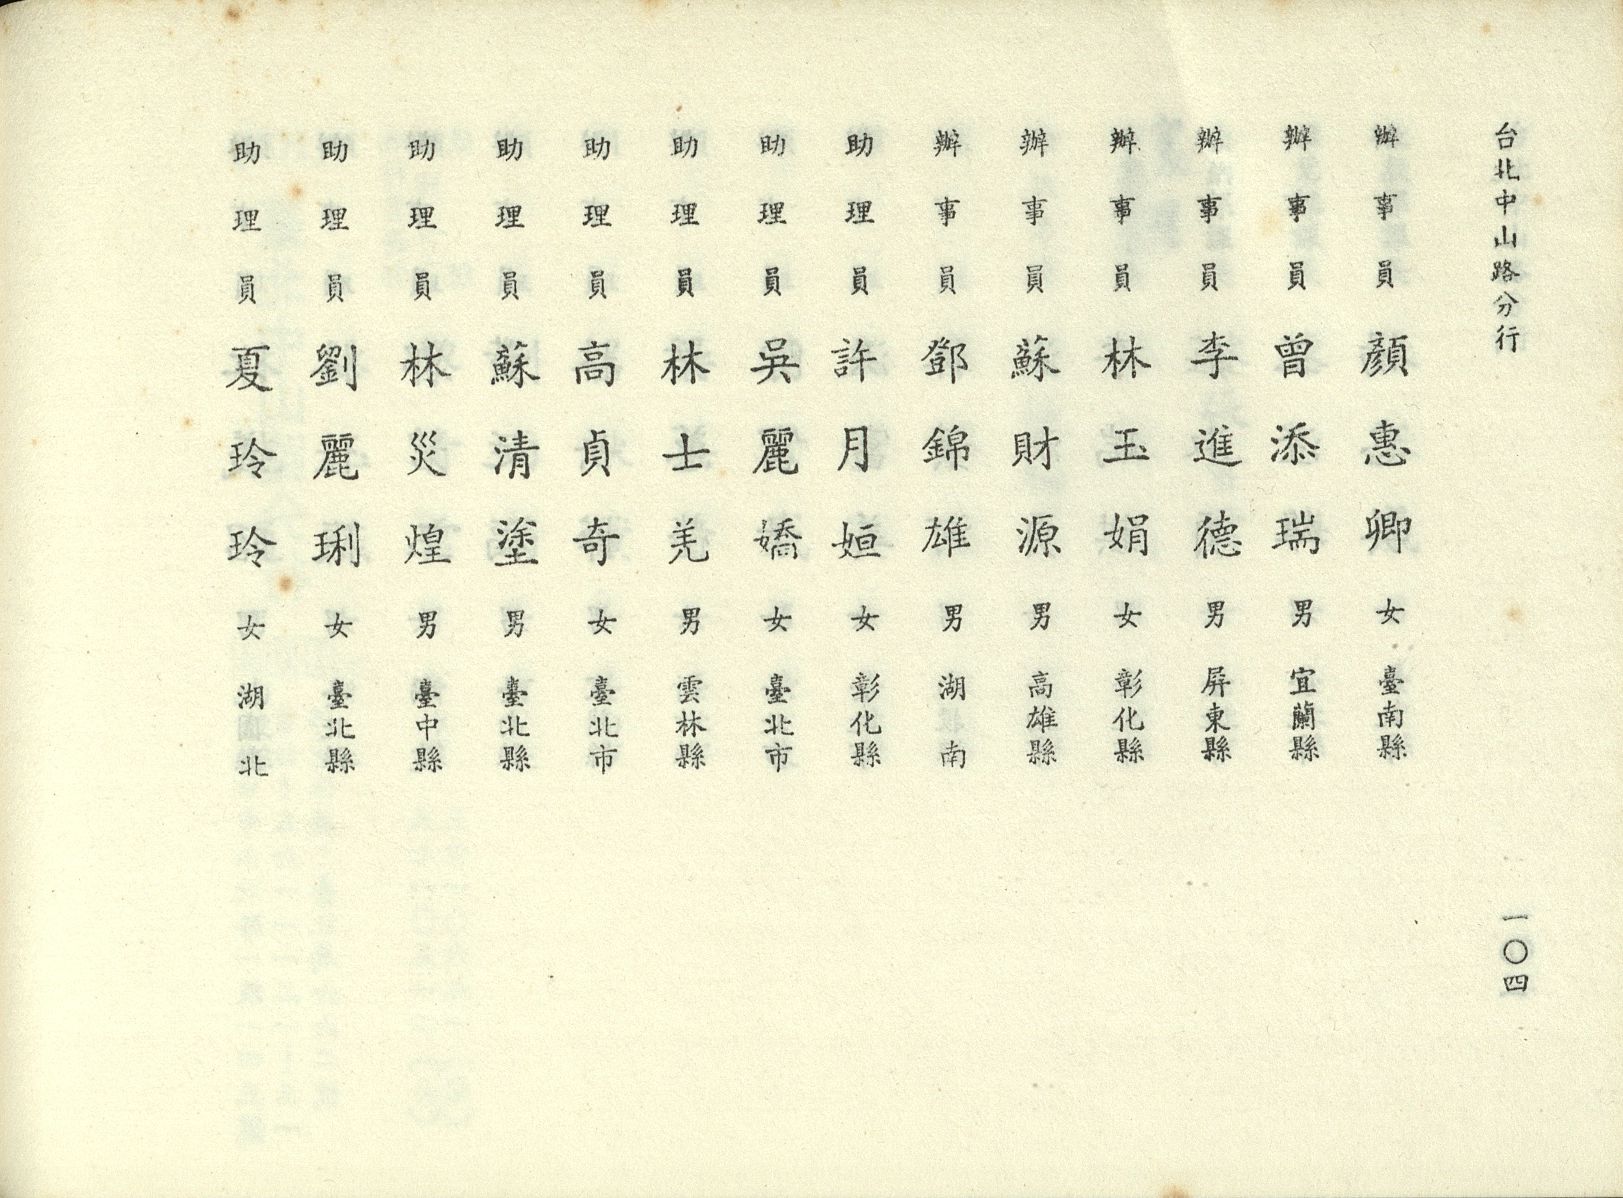 台北中山路分行
一〇四
辦事員 顏惠卿 女 臺南縣
辦事員 曾添瑞 男 宜蘭縣
辦事員 李進德 男 屏東縣
辦事員 林玉娟 女 彰化縣
辦事員 蘇財源 男 高雄縣
辦事員 鄧錦雄 男 湖南
助理員 許月姮 女 彰化縣
助理員 吳麗嬌 女 臺北市
助理員 林士羌 男 雲林縣
助理員 高貞奇 女 臺北市
助理員 蘇清塗 男 臺北縣
助理員 林災煌 男 臺中縣
助理員 劉麗琍 女 臺北縣
助理員 夏玲玲 女 湖北